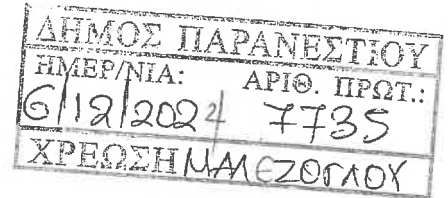 ΔΗΜΟΣ ΠΑΡΑΝΕΣΤΙΟΥ
ΗΜΕΡ/ΝΙΑ: ΑΡΙΘ. ΠΡΩΤ.:
6/12/2022 7735
ΧΡΕΩΣΗ